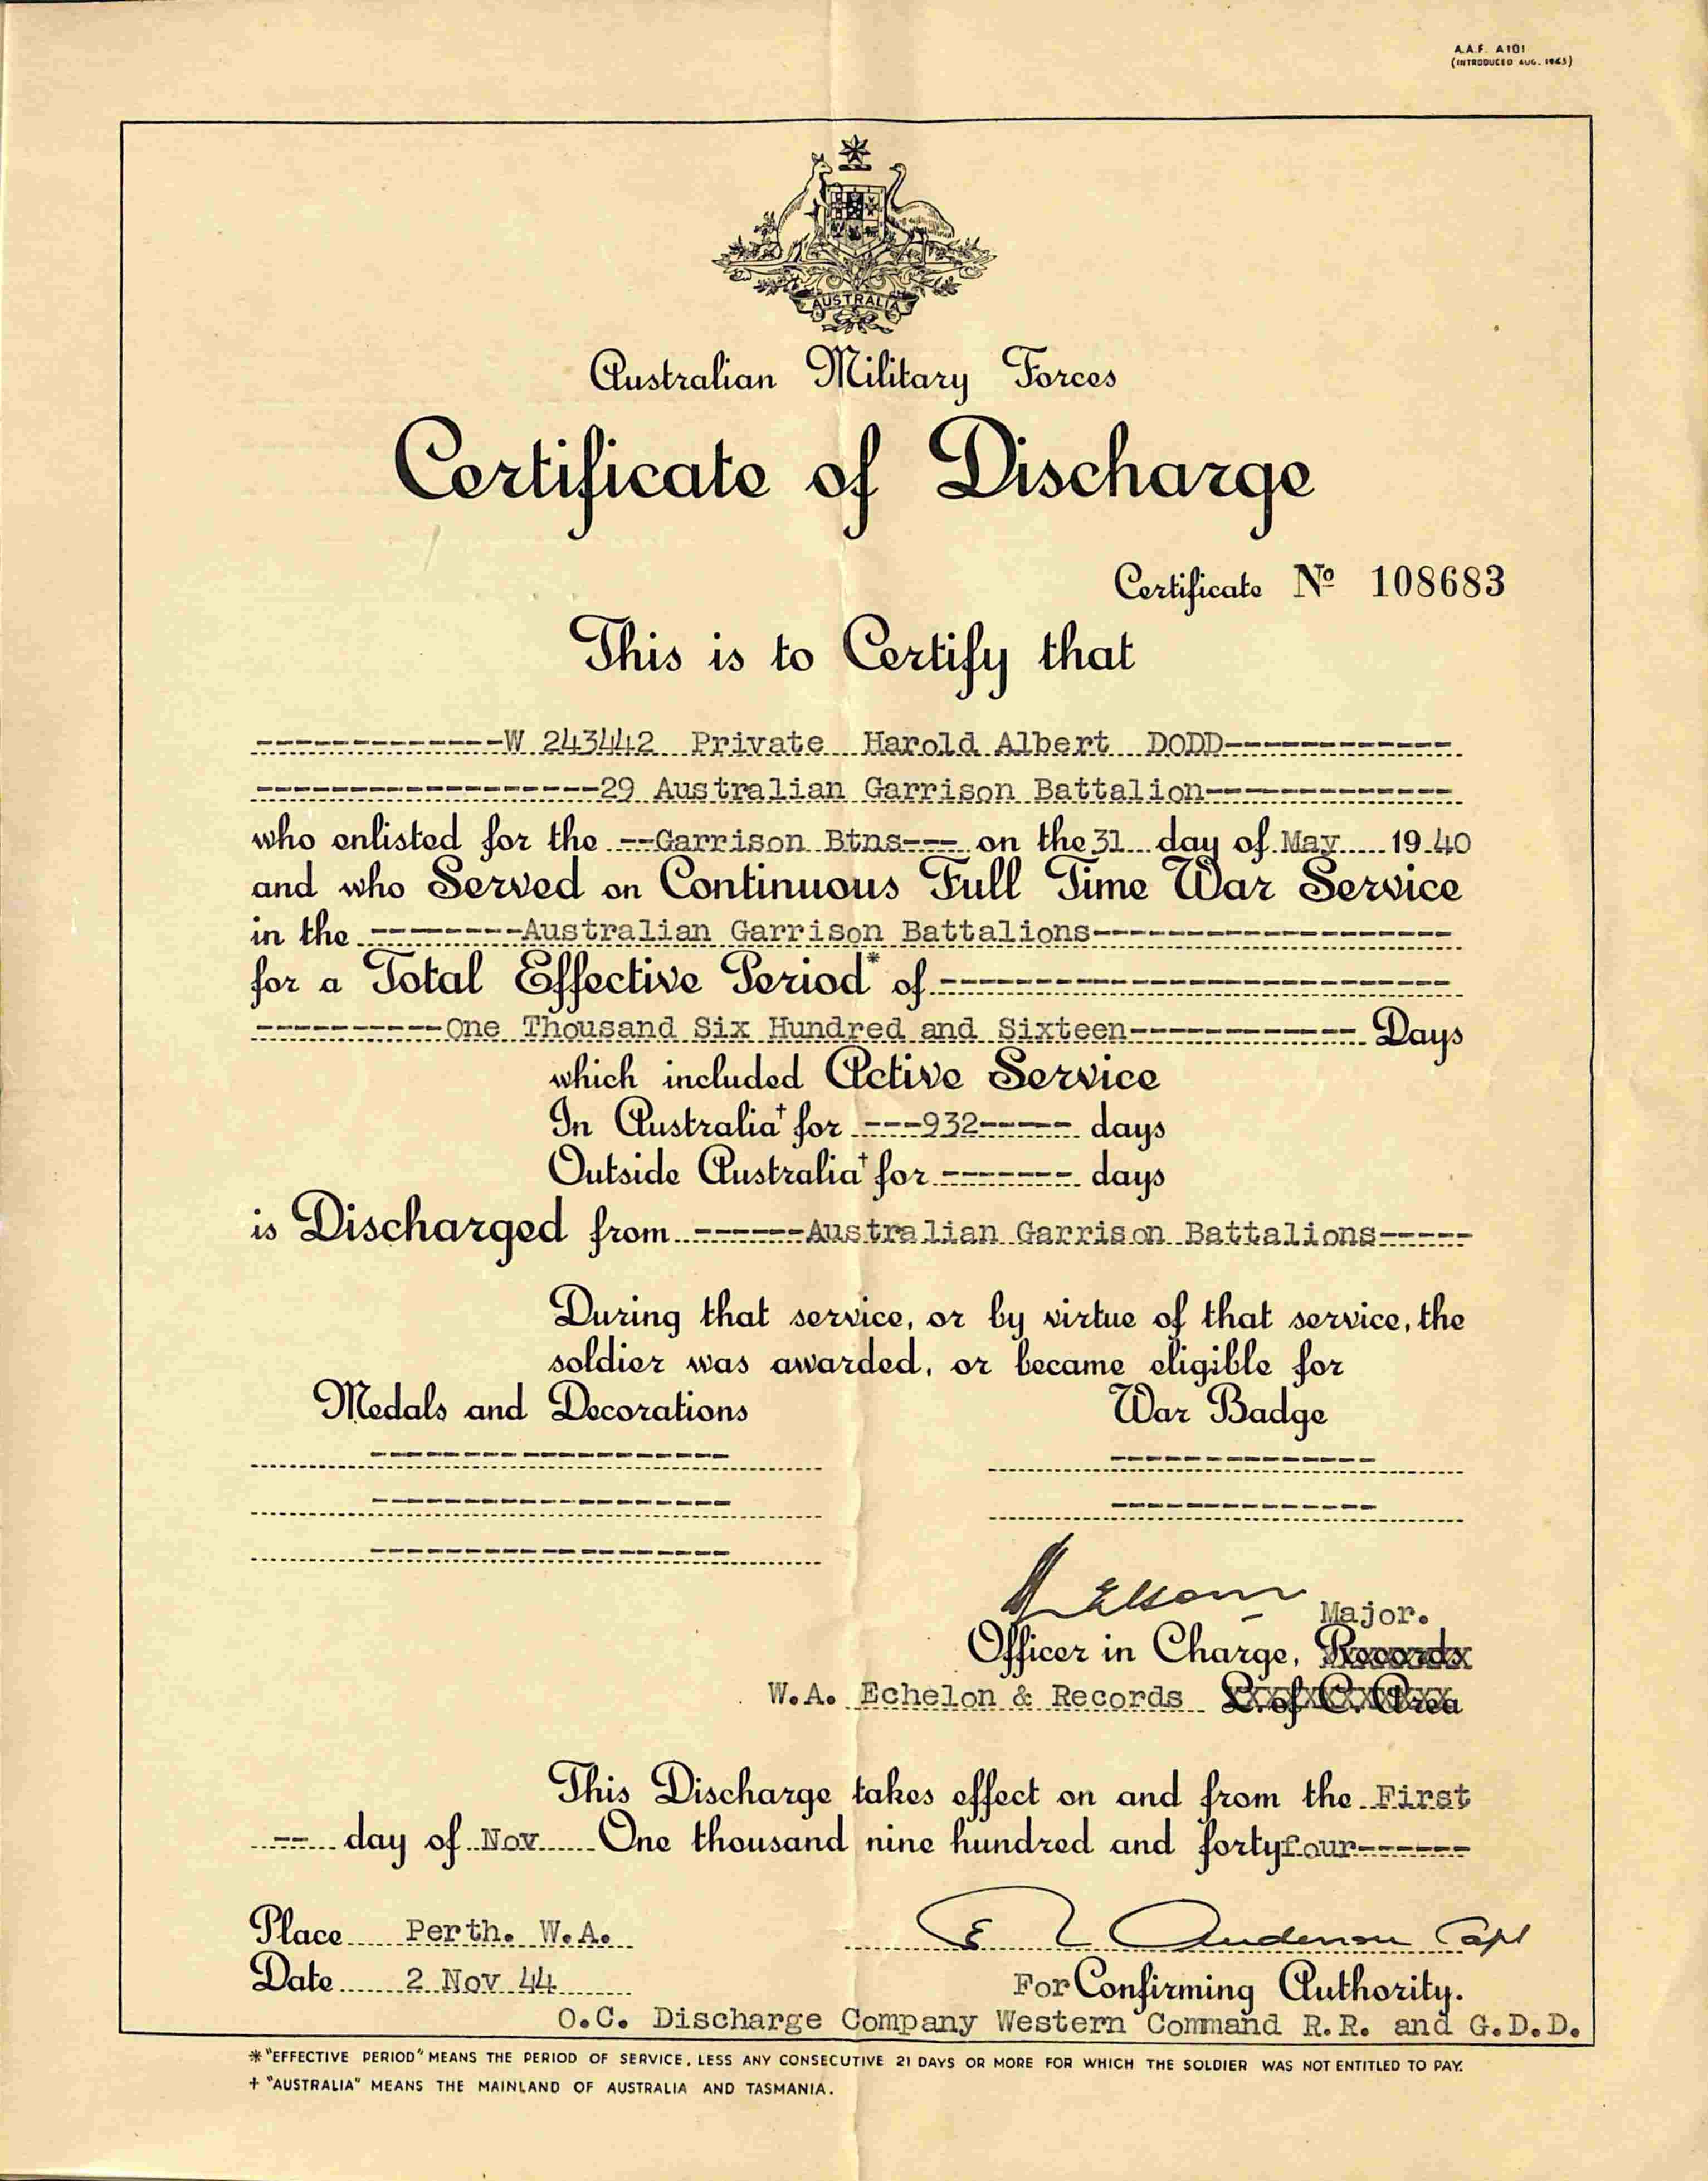 A.A.F. A101
(INTRODUCED AUG. 1943)
AUSTRALIA
Australian Military Forces
Certificate of Discharge
Certificate № 108683
This is to Certify that
--------------W 243442 Private Harold Albert DODD-------------
-------------------29 Australian Garrison Battalion--------------
who enlisted for the --Garrison Btns--- on the 31 day of May 19 40
and who Served on Continuous Full Time War Service
in the ---------Australian Garrison Battalions--------------------
for a Total Effective Period* of ----------------------------
----------One Thousand Six Hundred and Sixteen------------- Days
which included Active Service
In Australia† for ---932----- days
Outside Australia† for -------- days
is Discharged from ------Australian Garrison Battalions-----
During that service, or by virtue of that service, the
soldier was awarded, or became eligible for
Medals and Decorations War Badge
Major.
Officer in Charge, Records
W.A. Echelon & Records L. of C. Area
This Discharge takes effect on and from the First
-- day of Nov One thousand nine hundred and forty four------
Place Perth. W.A. E Anderson Capt
Date 2 Nov 44 For Confirming Authority.
O.C. Discharge Company Western Command R.R. and G.D.D.
* "EFFECTIVE PERIOD" MEANS THE PERIOD OF SERVICE, LESS ANY CONSECUTIVE 21 DAYS OR MORE FOR WHICH THE SOLDIER WAS NOT ENTITLED TO PAY.
† "AUSTRALIA" MEANS THE MAINLAND OF AUSTRALIA AND TASMANIA.